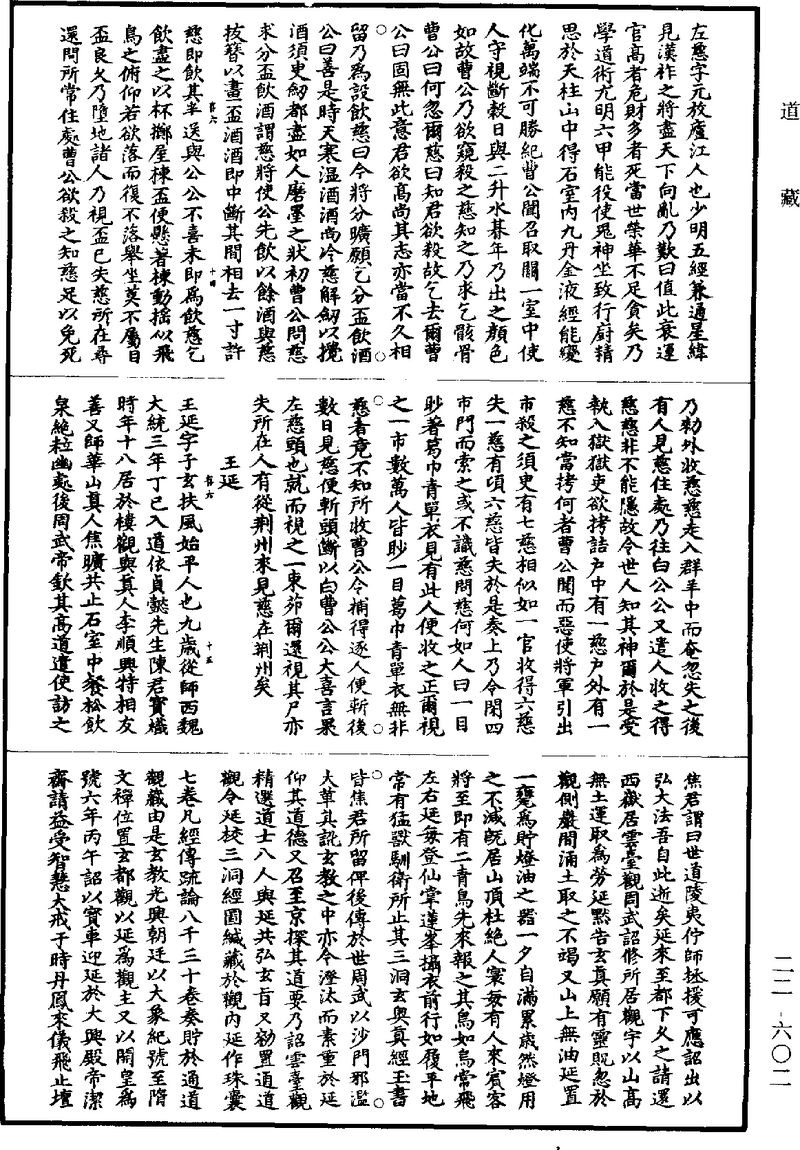 道藏
左慈字元放廬江人也少明五經兼通星緯
見漢祚之將盡天下向亂乃歎曰值此衰運
官高者危財多者死當世榮華不足貪矣乃
學道術尤明六甲能役使鬼神坐致行厨精
思於天柱山中得石室內九丹金液經能變
化萬端不可勝紀曹公聞召取關一室中使
人守視斷穀日與二升水朞年乃出之顏色
如故曹公乃欲窺殺之慈知之乃求乞骸骨
曹公曰何忽爾慈曰知君欲殺故乞去爾曹
公曰固無此意君欲高尚其志亦當不久相
留乃爲設飲慈曰今將分曠願乞分盃飲酒
公曰善是時天寒温酒酒尚冷慈解劒以攪
酒須臾劒都盡如人磨墨之狀初曹公問慈
求分盃飲酒謂慈將使公先飲以餘酒與慈
拔簪以畫盃酒酒即中斷其間相去一寸許
慈即飲其半送與公公不喜未即爲飲慈乞
飲盡之以杯擲屋棟盃便懸著棟動摇似飛
鳥之俯仰若欲落而復不落舉坐莫不屬目
盃良久乃墮地諸人乃視盃已失慈所在尋
還問所常住處曹公欲殺之知慈足以免死
乃勑外收慈慈走入群羊中而奄忽失之後
有人見慈住處乃往白公公又遣人收之得
慈慈非不能隱故令世人知其神爾於是受
執入獄獄吏欲拷詰户中有一慈户外有一
慈不知當拷何者曹公聞而惡使將軍引出
市殺之須臾有七慈相似如一官收得六慈
失一慈有頃六慈皆失於是奏上乃令閉四
市門而索之或不識慈問慈何如人曰一目
眇著葛巾青單衣見有此人便收之正爾視
之一市數萬人皆眇一目葛巾青單衣無非
慈者竟不知所收曹公令捕得逐人便斬後
數日見慈便斬頭斷以白曹公公大喜言果
左慈頭也就而視之一束茆爾還視其尸亦
失所在人有從荆州來見慈在荆州矣
王延
王延字子玄扶風始平人也九歲從師西魏
大統三年丁巳入道依貞懿先生陳君寶熾
時年十八居於樓觀與真人李順興特相友
善又師華山真人焦曠共止石室中餐松飲
泉絶粒幽處後周武帝欽其高道遣使訪之
焦君謂曰世道陵夷佇師拯援可應詔出以
弘大法吾自此逝矣延來至都下久之請還
西嶽居雲臺觀周武詔修所居觀宇以山高
無土運取爲勞延默告玄真願有靈貺忽於
觀側巖間涌土取之不竭又山上無油延置
一甕爲貯燈油之器一夕自滿累歲然燈用
之不減旣居山頂杜絶人寰每有人來賓客
將至即有二青鳥先來報之其鳥如烏常飛
左右延每登仙掌蓮峯攝衣前行如履平地
常有猛獸馴衛所止其三洞玄奥真經玉書
皆焦君所留俾後傳於世周武以沙門邪濫
大革其訛玄教之中亦令澄汰而素重於延
仰其道德又召至京探其道要乃詔雲臺觀
精選道士八人與延共弘玄旨又勑置通道
觀令延校三洞經圖緘藏於觀内延作珠囊
七卷凡經傳疏論八千三十卷奏貯於通道
觀藏由是玄教光興朝廷以大象紀號至隋
文禪位置玄都觀以延爲觀主又以開皇爲
號六年丙午詔以寶車迎延於大興殿帝潔
齋請益受智慧大戒于時丹鳳來儀飛止壇
二二-六〇二